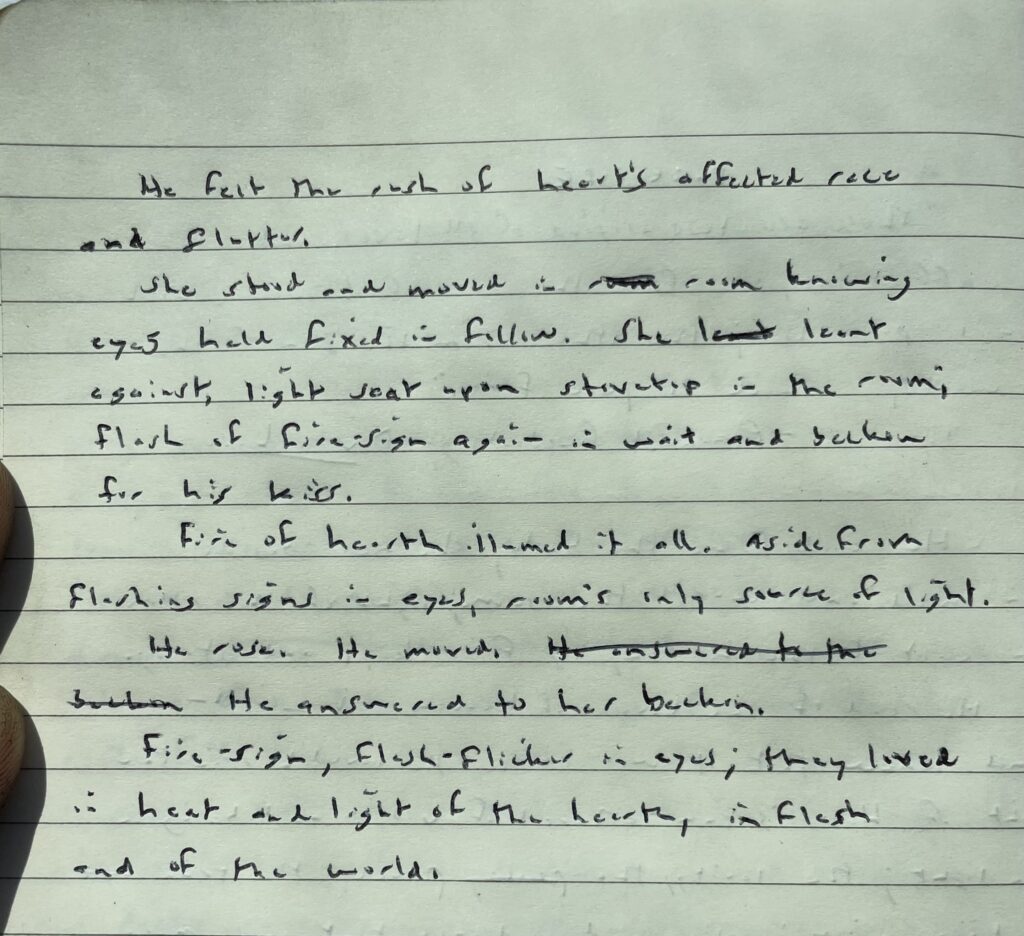 He felt the rush of heart's affected race
and flutter.
She stood and moved in room room knowing
eyes held fixed in follow. She leant leant
against, light seat upon stovetop in the room;
flash of fire-sign again in wait and beckon
for his kiss.
Fire of hearth illumed it all. Aside from
flashing signs in eyes, room's only source of light.
He rose. He moved. He answered to the
beckon He answered to her beckon.
Fire-sign, flash-flicker in eyes; they loved
in heat and light of the hearth, in flash
end of the world.